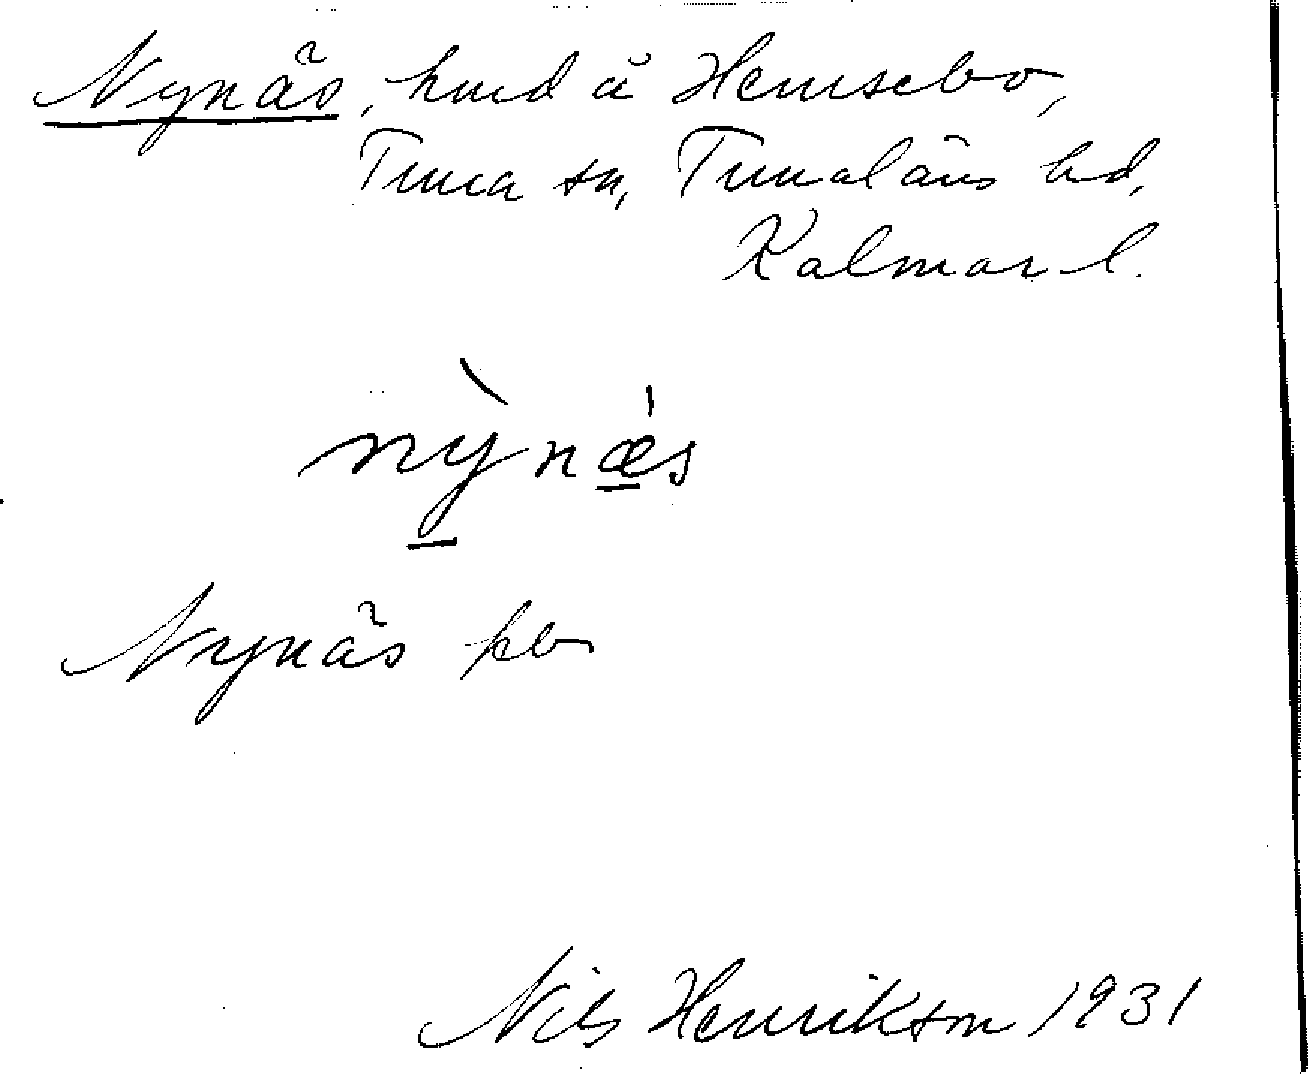 Nynäs, hmd å Hemsebo,
Tuna sn, Tunaläns hd,
Kalmar l.
nỳnæ̀s
Nynäs kb
Nils Henrikson 1931